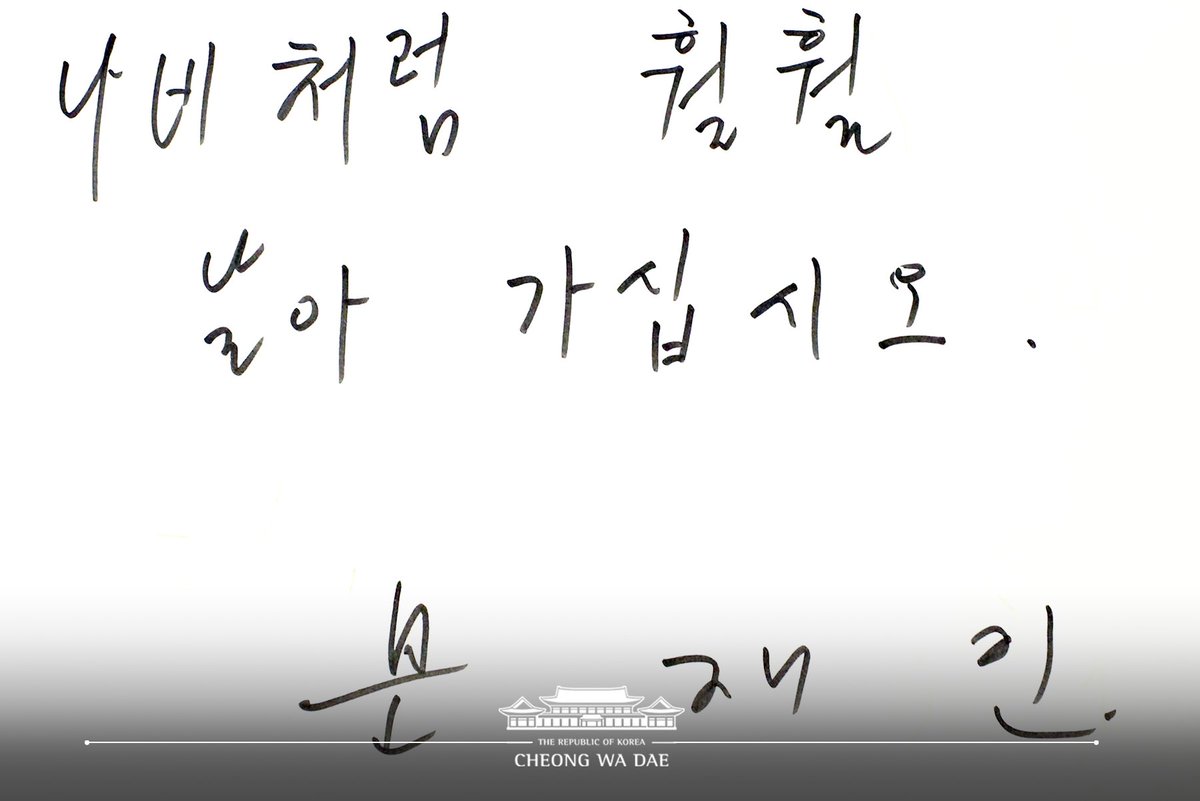 나비처럼 훨훨
날아 가십시오.
문 재 인.
THE REPUBLIC OF KOREA
CHEONG WA DAE